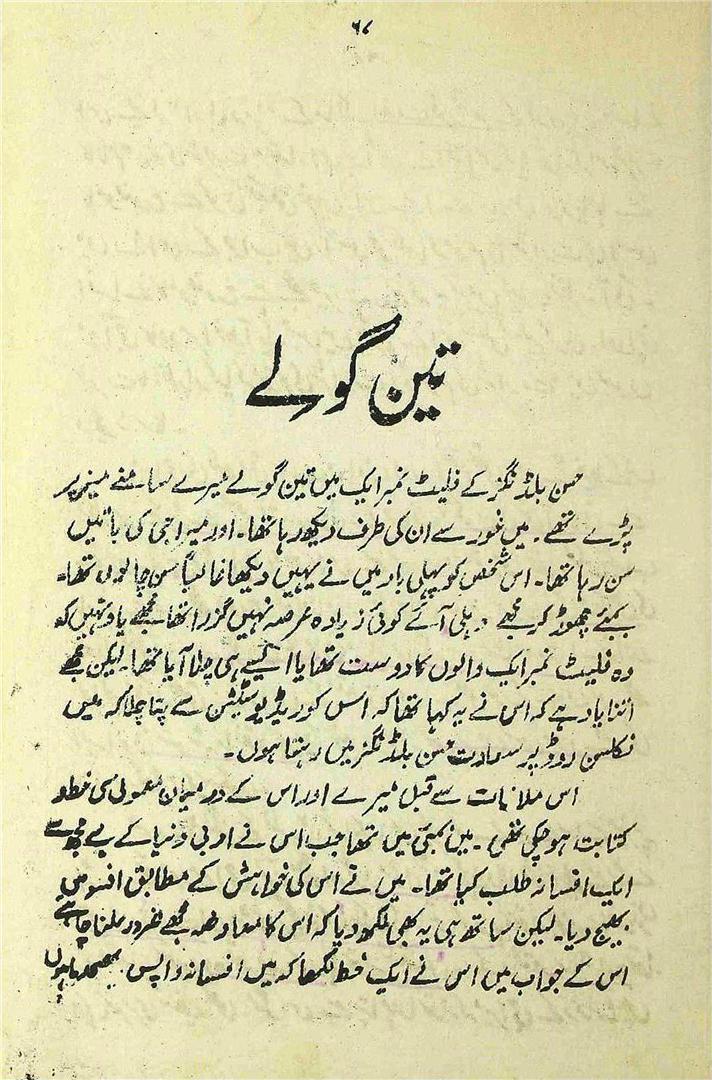 ۶۸
تین گولے
حسن بلڈنگز کے فلیٹ نمبر ایک میں تین گولے میرے سامنے میز پر
پڑے تھے۔ میں غور سے ان کی طرف دیکھ رہا تھا۔ اور میرا جی کی باتیں
سن رہا تھا۔ اس شخص کو پہلی بار میں نے یہیں دیکھا غالباً سن چالیس تھا۔
بمبئے چھوڑ کر مجھے دہلی آئے کوئی زیادہ عرصہ نہیں گزرا تھا مجھے یاد نہیں کہ
وہ فلیٹ نمبر ایک والوں کا دوست تھا یا ایسے ہی چلا آیا تھا۔ لیکن مجھے
اتنا یاد ہے کہ اس نے یہ کہا تھا کہ اس کو ریڈیو سٹیشن سے پتا چلا کہ میں
نکلسن روڈ پر سعادت حسن بلڈنگز میں رہتا ہوں۔
اس ملاقات سے قبل میرے اور اس کے درمیان معمولی سی خط و
کتابت ہو چکی تھی۔ میں بمبئی میں تھا جب اس نے ادبی دنیا کے لیے مجھ سے
ایک افسانہ طلب کیا تھا۔ میں نے اس کی خواہش کے مطابق افسانہ
بھیج دیا۔ لیکن ساتھ ہی یہ بھی لکھ دیا کہ اس کا معاوضہ مجھے ضرور ملنا چاہئے
اس کے جواب میں اس نے ایک خط لکھا کہ میں افسانہ واپس بھیج رہا ہوں